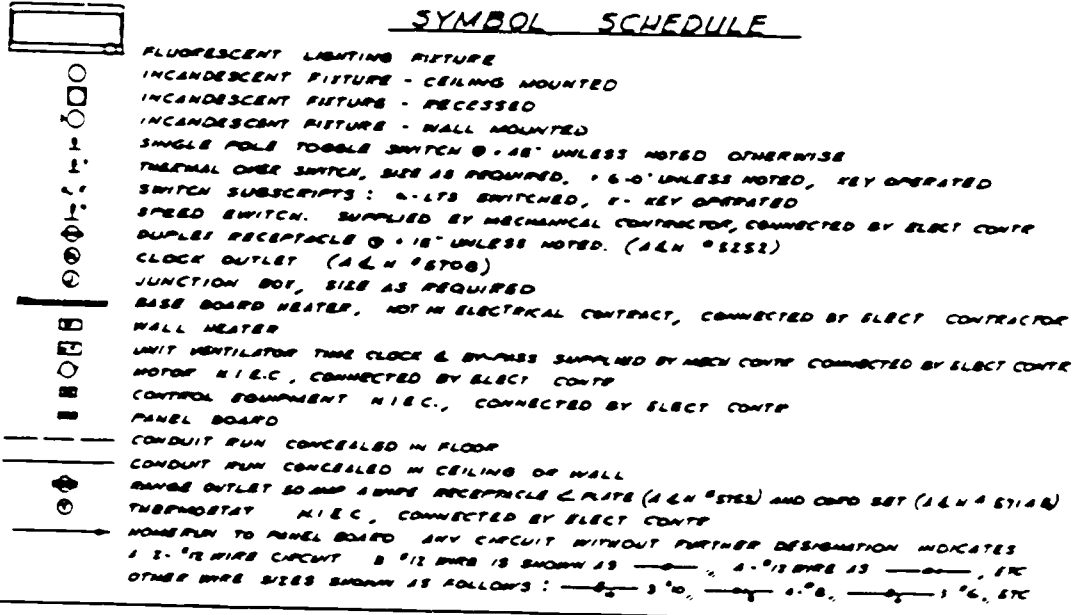 SYMBOL SCHEDULE
FLUORESCENT LIGHTING FIXTURE
INCANDESCENT FIXTURE - CEILING MOUNTED
INCANDESCENT FIXTURE - RECESSED
INCANDESCENT FIXTURE - WALL MOUNTED
SINGLE POLE TOGGLE SWITCH @ + 48" UNLESS NOTED OTHERWISE
THERMAL OVER SWITCH, SIZE AS REQUIRED, + 6'-0" UNLESS NOTED, KEY OPERATED
SWITCH SUBSCRIPTS: a-LTS SWITCHED, K- KEY OPERATED
SPEED SWITCH. SUPPLIED BY MECHANICAL CONTRACTOR, CONNECTED BY ELECT CONTR
DUPLEX RECEPTACLE @ + 18" UNLESS NOTED. (A&H #5252)
CLOCK OUTLET (A&H #5708)
JUNCTION BOX, SIZE AS REQUIRED
BASE BOARD HEATER, NOT IN ELECTRICAL CONTRACT, CONNECTED BY ELECT CONTRACTOR
WALL HEATER
UNIT VENTILATOR TIME CLOCK & BY-PASS SUPPLIED BY MECH CONTR CONNECTED BY ELECT CONTR
MOTOR N.I.E.C, CONNECTED BY ELECT CONTR
CONTROL EQUIPMENT N.I.E.C., CONNECTED BY ELECT CONTR
PANEL BOARD
CONDUIT RUN CONCEALED IN FLOOR
CONDUIT RUN CONCEALED IN CEILING OR WALL
RANGE OUTLET 50 AMP 4 WIRE RECEPTACLE & PLATE (A&H #5752) AND CORD SET (A&H # )
THERMOSTAT N.I.E.C, CONNECTED BY ELECT CONTR
HOMERUN TO PANEL BOARD ANY CIRCUIT WITHOUT FURTHER DESIGNATION INDICATES
A 2-#12 WIRE CIRCUIT 3 #12 WIRE IS SHOWN AS , 4-#12 WIRE AS , ETC
OTHER WIRE SIZES SHOWN AS FOLLOWS: 3 #10, 4-#8, 3 #6, ETC